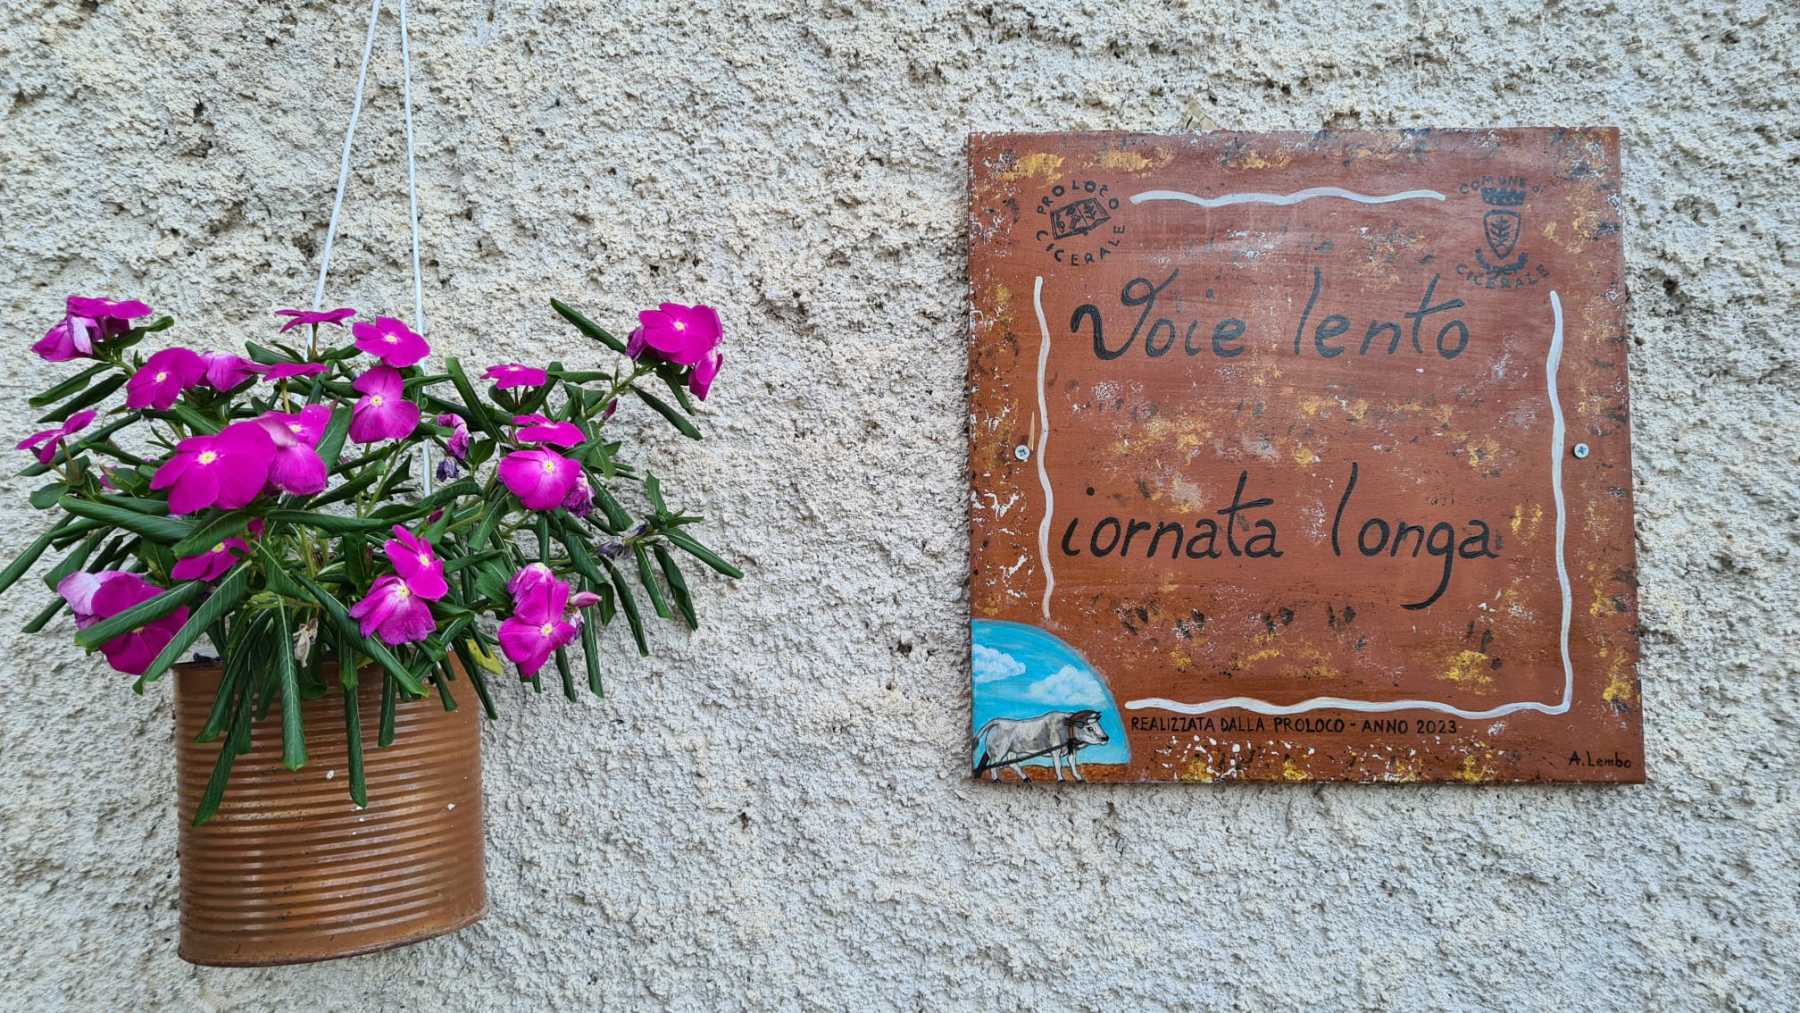 PROLOCO
CICERALE
COMUNE di
CICERALE
Voie lento
iornata longa
REALIZZATA DALLA PROLOCO - ANNO 2023
A. Lembo